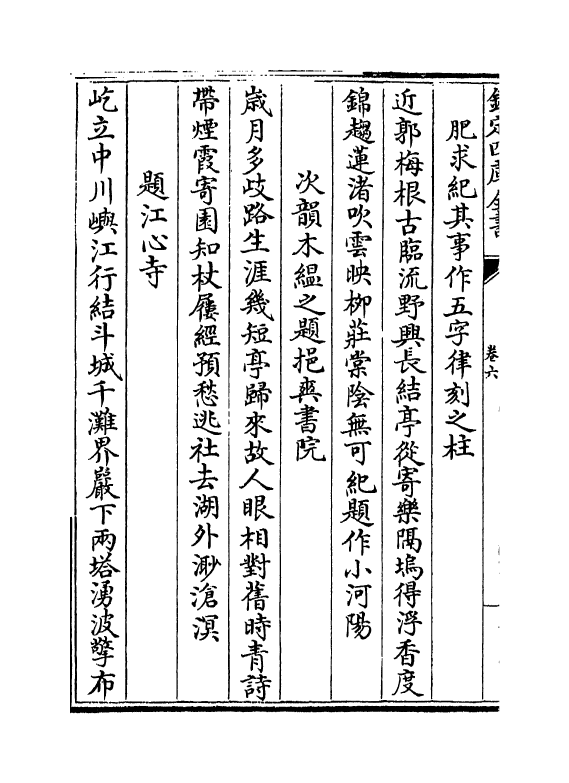 欽定四庫全書
卷六
肥求紀其事作五字律刻之柱
近郭梅根古臨流野興長結亭從寄樂隔塢得浮香度
錦趨蓮渚吹雲映柳莊棠陰無可紀題作小河陽
次韻木縕之題挹爽書院
歳月多歧路生涯幾短亭歸來故人眼相對舊時青詩
帶煙霞寄園知杖屨經預愁逃社去湖外渺滄溟
題江心寺
屹立中川嶼江行結斗城千灘界嚴下兩塔湧波擎布